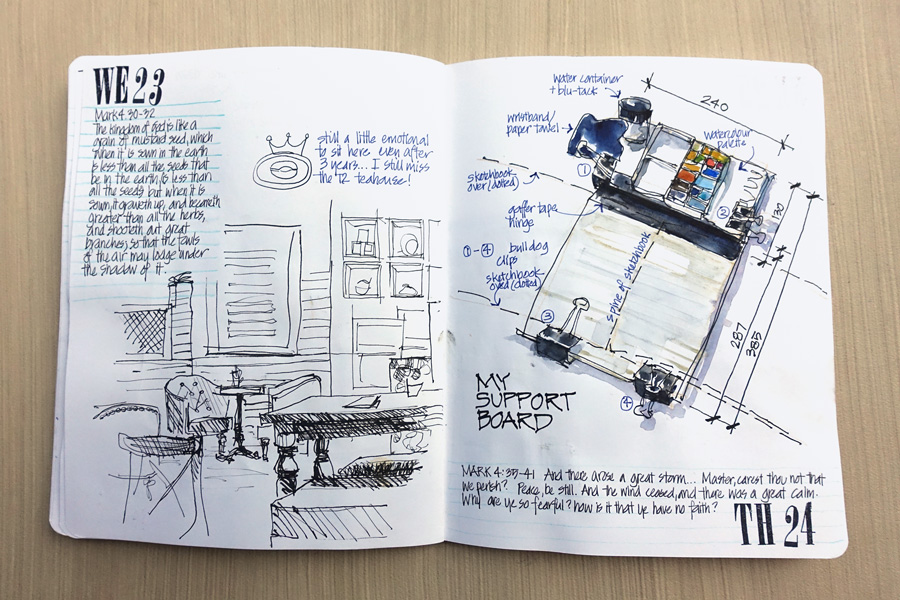 WE 23
Mark 4.30-32
The kingdom of God is like a
grain of mustard seed, which
when it is sown in the earth
is less than all the seeds that
be in the earth, is less than
all the seeds but when it is
sown, it groweth up, and becometh
greater than all the herbs,
and shooteth out great
branches; so that the fowls
of the air may lodge under
the shadow of it.
still a little emotional
to sit here even after
3 years... I still miss
the '12 teahouse!
water container
+ blu-tack
240
wristband/
paper towel
watercolour
palette
①
sketchbook
over (dotted)
②
130
gaffer tape
hinge
①-④ bulldog
clips
sketchbook
(dotted)
spine of sketchbook
③
287
385
MY
SUPPORT
BOARD
④
MARK 4:35-41 And there arose a great storm... Master, carest thou not that
we perish? Peace, be still. And the wind ceased, and there was a great calm.
Why are ye so fearful? how is it that ye have no faith?
TH 24